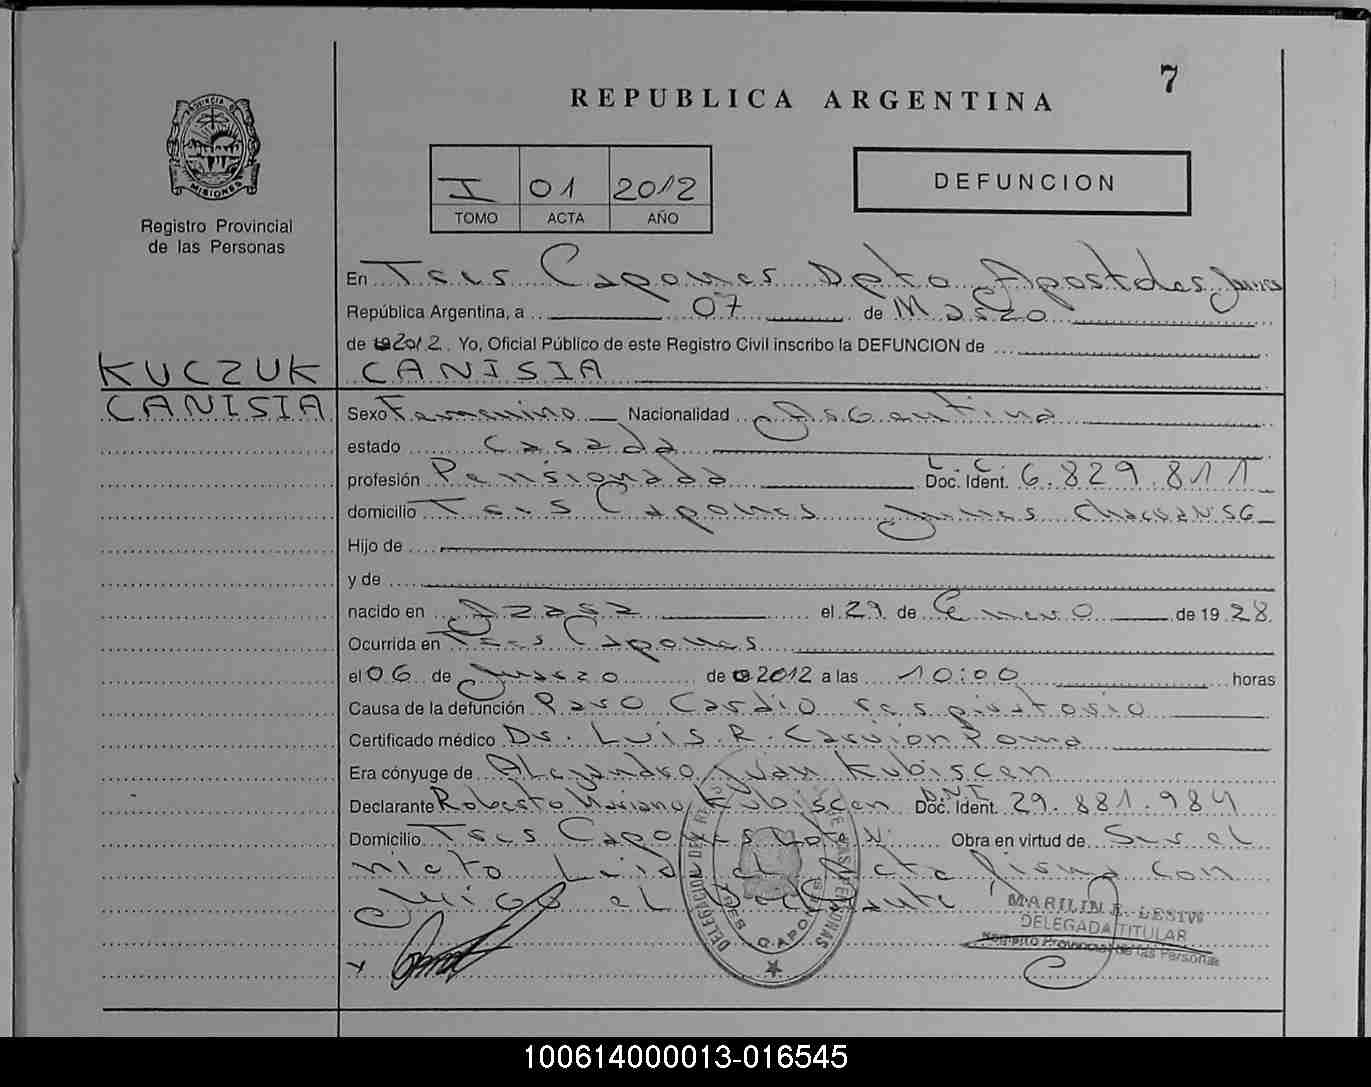 7
REPUBLICA ARGENTINA
PROVINCIA DE
MISIONES
Registro Provincial
de las Personas
I 01 2012
TOMO ACTA AÑO
DEFUNCION
En Tres Capones Dpto Apostoles
República Argentina, a 07 de Marzo
de 2012. Yo, Oficial Público de este Registro Civil inscribo la DEFUNCION de
KUCZUK CANISIA
CANISIA
Sexo Femenino Nacionalidad Argentina
estado Casada
profesión Pensionada L.C. Doc. Ident. 6.829.811
domicilio Tres Capones
Hijo de
y de
nacido en Azara el 29 de Enero de 1928
Ocurrida en Tres Capones
el 06 de Marzo de 2012 a las 10:00 horas
Causa de la defunción Paro Cardio respiratorio
Certificado médico Dr. Luis R. Carrion Poma
Era cónyuge de Alejandro Juan Kubiscen
Declarante Roberto Mariano Kubiscen D.N.I Doc. Ident. 29.881.984
Domicilio Tres Capones Obra en virtud de Ser el
nieto Leida el Acta firma con
migo el Declarante
DELEGACION DEL REGISTRO DE LAS PERSONAS
TRES CAPONES
MARILIN E. LESIW
DELEGADA TITULAR
Registro Provincial de las Personas
100614000013-016545